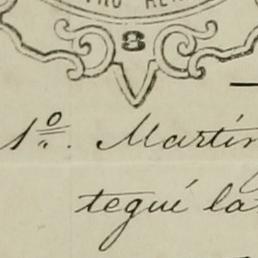 8
1º. Martín
tegué la